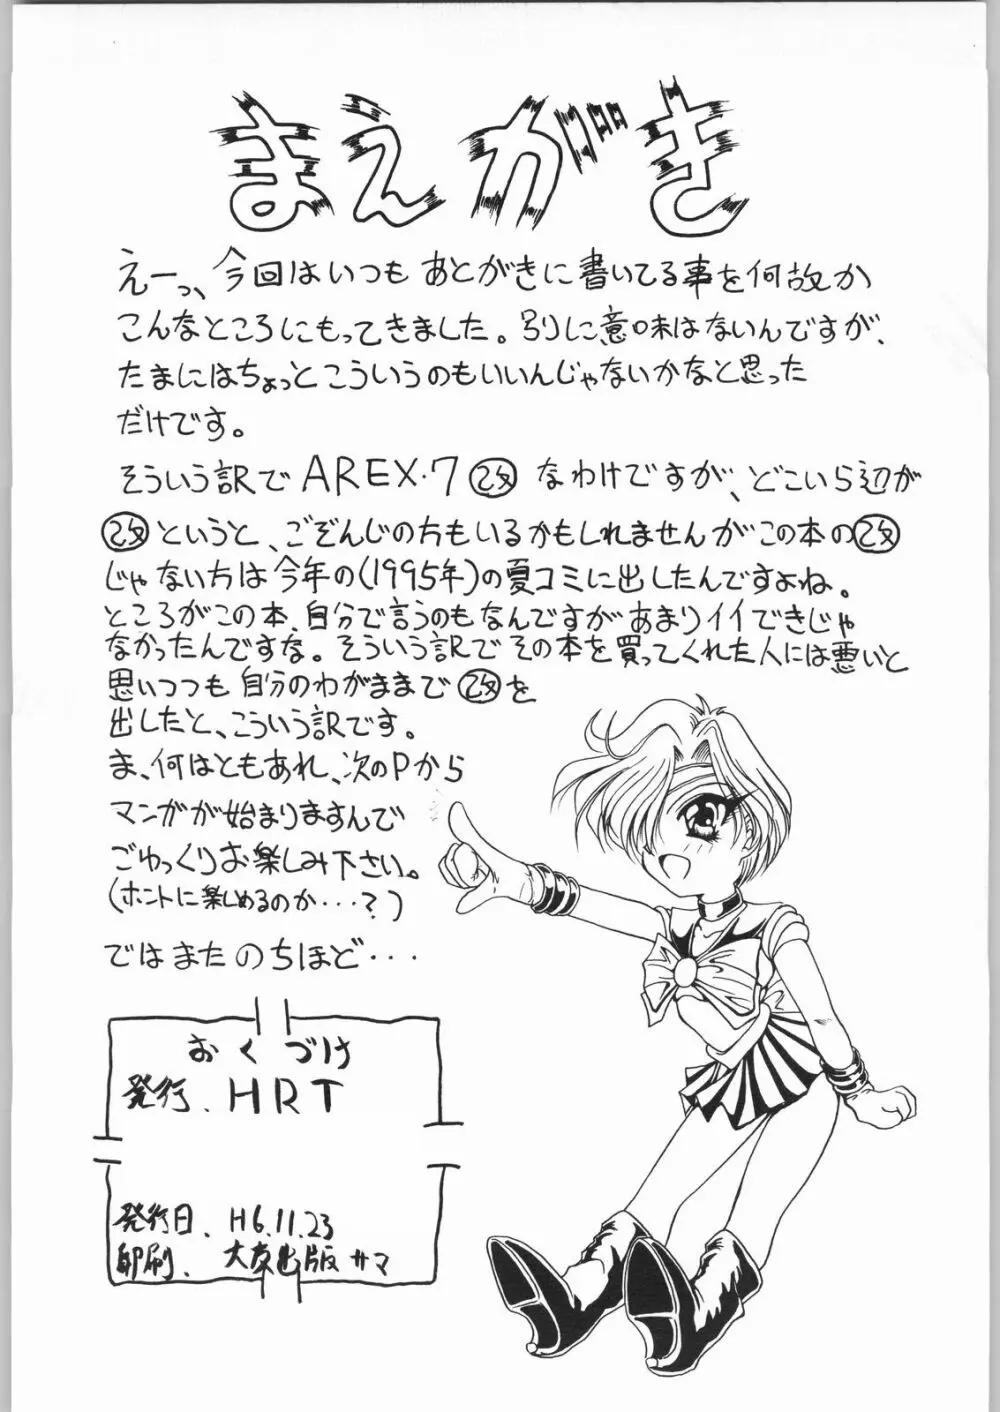 まえがき
えーっ、今回はいつもあとがきに書いてる事を何故か
こんなところにもってきました。別りに意味はないんですが、
たまにはちょっとこういうのもいいんじゃないかなと思った
だけです。
そういう訳でAREX・7改なわけですが、どこいら辺が
改というと、ごぞんじの方もいるかもしれませんがこの本の改
じゃない方は今年の(1995年)の夏コミに出したんですよね。
ところがこの本、自分で言うのもなんですがあまりイイできじゃ
なかったんですな。そういう訳でその本を買ってくれた人には悪いと
思いつつも自分のわがままで改を
出したと、こういう訳です。
ま、何はともあれ、次のPから
マンガが始まりますんで
ごゆっくりお楽しみ下さい。
(ホントに楽しめるのか・・・?)
ではまたのちほど・・・
おくづけ
発行.HRT
発行日.H6.11.23
印刷.大友出版サマ